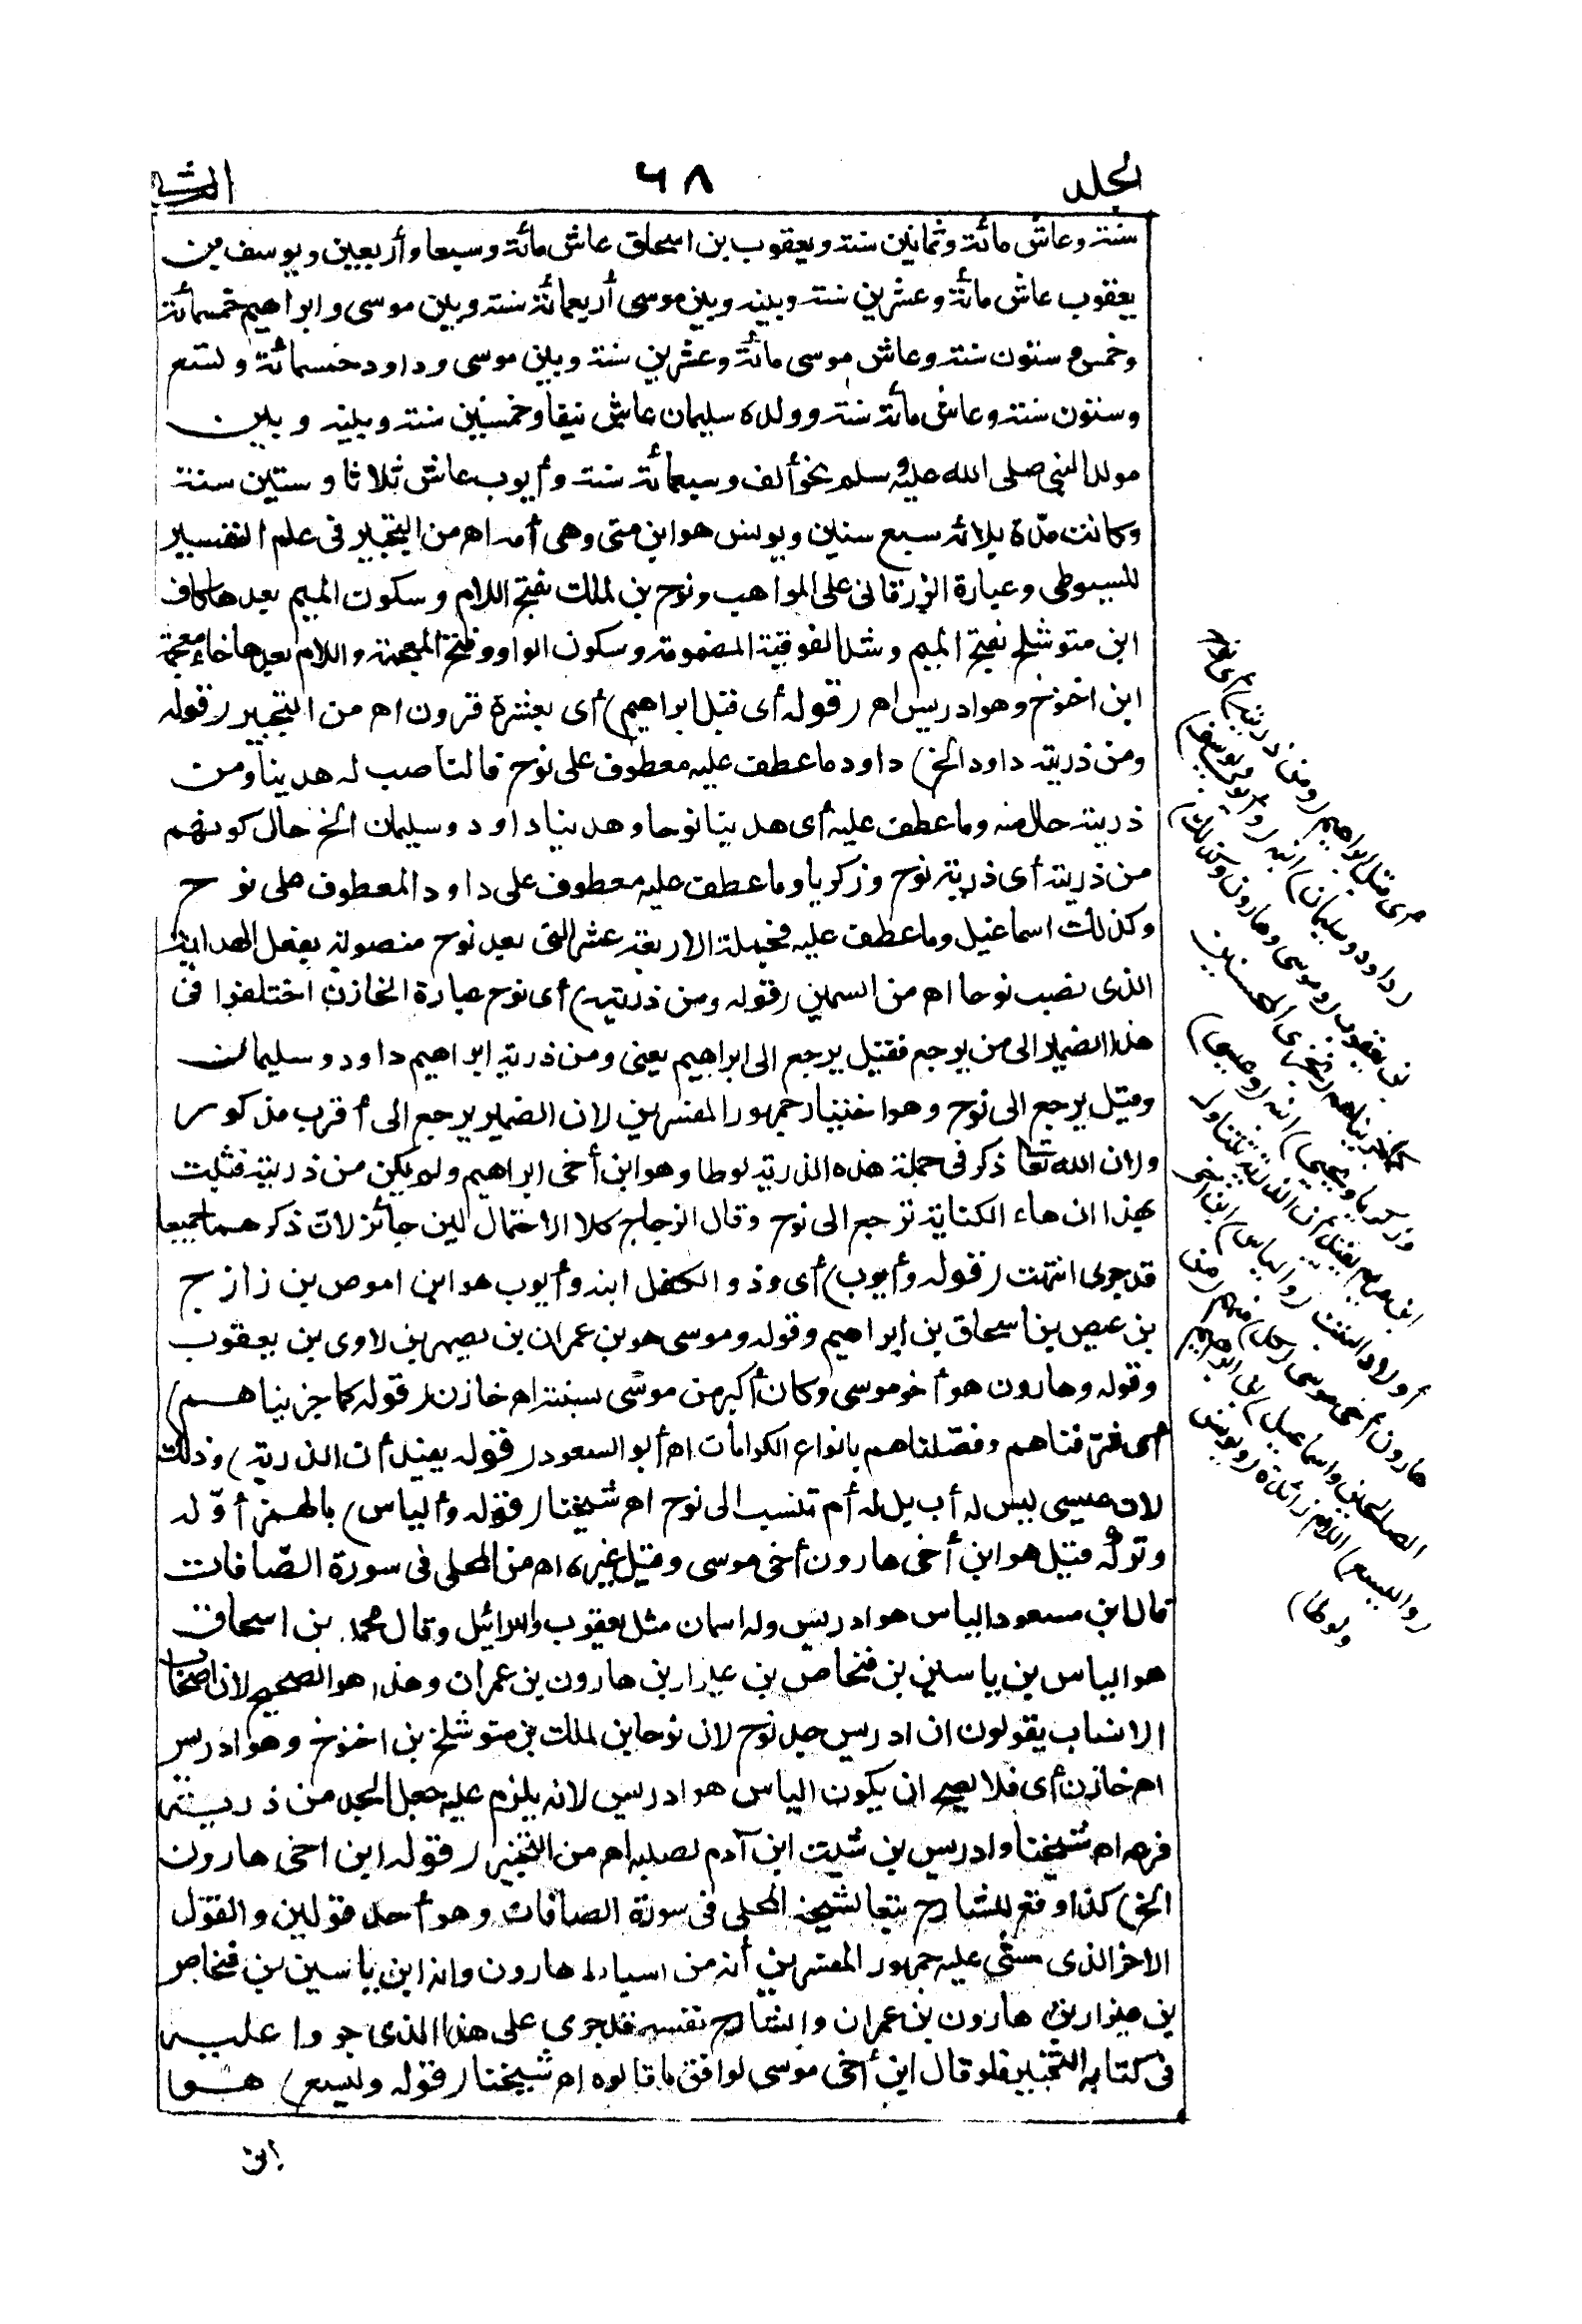 الجلد ٦٨
سنة وعاش مائة وثمانين سنة ويعقوب بن اسحاق عاش مائة وسبعا وأربعين ويوسف بن
يعقوب عاش مائة وعشرين سنة وبينه وبين موسى أربعمائة سنة وبين موسى وابراهيم خمسمائة
وخمس وستون سنة وعاش موسى مائة وعشرين سنة وبين موسى وداود خمسمائة وتسع
وستون سنة وعاش مائة سنة وولده سليمان عاش نيفا وخمسين سنة وبينه وبين
مولد النبي صلى الله عليه وسلم نحو ألف وسبعمائة سنة وأيوب عاش ثلاثا وستين سنة
وكانت مدّة بلائه سبع سنين ويونس هو ابن متى وهى أمه اهـ من التحبير فى علم التفسير
للسيوطى وعبارة الزرقانى على المواهب ونوح بن لمك بفتح اللام وسكون الميم بعدها كاف
ابن متوشلخ بفتح الميم وشد الفوقية المضمومة وسكون الواو وفتح المعجمة واللام بعدها خاء معجمة
ابن اخنوخ وهو ادريس اهـ (قوله أى قبل ابراهيم) أى بعشرة قرون اهـ من التحبير (قوله
ومن ذريته داود الخ) داود وما عطف عليه معطوف على نوح فالناصب له هدينا ومن
ذريته حال منه وما عطف عليه أى هدينا نوحا وهدينا داود وسليمان الخ حال كونهم
من ذريته أى ذرية نوح وزكريا وما عطف عليه معطوف على داود المعطوف على نوح
وكذلك اسماعيل وما عطف عليه فجملة الاربعة عشر التى بعد نوح منصوبة بفعل الهداية
الذى نصب نوحا اهـ من السمين (قوله ومن ذريته) أى نوح عبارة الخازن اختلفوا فى
هذا الضمير الى من يرجع فقيل يرجع الى ابراهيم يعنى ومن ذرية ابراهيم داود وسليمان
وقيل يرجع الى نوح وهو اختيار جمهور المفسرين لان الضمير يرجع الى أقرب مذكور
ولان الله تعا ذكر فى جملة هذه الذرية لوطا وهو ابن أخى ابراهيم ولم يكن من ذريته فثبت
بهذا ان هاء الكناية ترجع الى نوح وقال الزجاج كلا الاحتمالين جائز لان ذكرهما جميعا
قد جرى انتهت (قوله وأيوب) أى وذو الكفل ابنه وأيوب هو ابن اموص بن رازح
بن عيص بن اسحاق بن ابراهيم وقوله وموسى هو بن عمران بن يصهر بن لاوى بن يعقوب
وقوله وهارون هو أخو موسى وكان أكبر من موسى بسنة اهـ خازن (قوله كما جزيناهم)
وفضلناهم بانواع الكرامات اهـ أبو السعود (قوله يفيد أن الذرية) وذلك
لان عيسى ليس له أب بل له أم تنسب الى نوح اهـ شيخنا (قوله وألياس) بالهمز أوّله
وتركه قيل هو ابن أخى هارون أخى موسى وقيل غيره اهـ من المحلى فى سورة الصّافات
قال ابن مسعود الياس هو ادريس وله اسمان مثل يعقوب واسرائيل وقال محمد بن اسحاق
هو الياس بن ياسين بن فنحاص بن عيزار بن هارون بن عمران وهذا هو الصحيح لان اصحاب
الانساب يقولون ان ادريس جد نوح لان نوحا بن لمك بن متوشلخ بن اخنوخ وهو ادريس
اهـ خازن أى فلا يصح ان يكون الياس هو ادريس لانه يلزم عليه جعل الجد من ذريته
فرعه اهـ شيخنا وادريس بن شيث ابن آدم لصلبه اهـ من التحبير (قوله ابن اخى هارون
الخ) كذا وقع للشارح تبعا لشيخه المحلى فى سورة الصافات وهو أحد قولين والقول
الاخر الذى مشى عليه جمهور المفسرين أنه من اسباط هارون وانه ابن ياسين بن فنحاص
بن عيزار بن هارون بن عمران والشارح نفسه قد جرى على هذا الذى جروا عليه
فى كتابه التحبير فلو قال ابن أخى موسى لوافق ما قالوه اهـ شيخنا (قوله وليسع) هو
ابن
أى قبل ابراهيم (ومن ذريته) أى نوح
(داود وسليمان) ابنه (وأيوب ويوسف)
بن يعقوب (وموسى وهارون وكذلك)
جزيناهم (نجزى المحسنين
وزكريا ويحيى) ابنه (وعيسى)
ابن مريم يفيد أن الذرية تتناول
أولاد البنت (والياس) ابن أخى
هارون أخى موسى (كل) منهم (من
الصالحين واسماعيل) بن ابراهيم
(واليسع) اللام زائدة (ويونس
ولوطا)